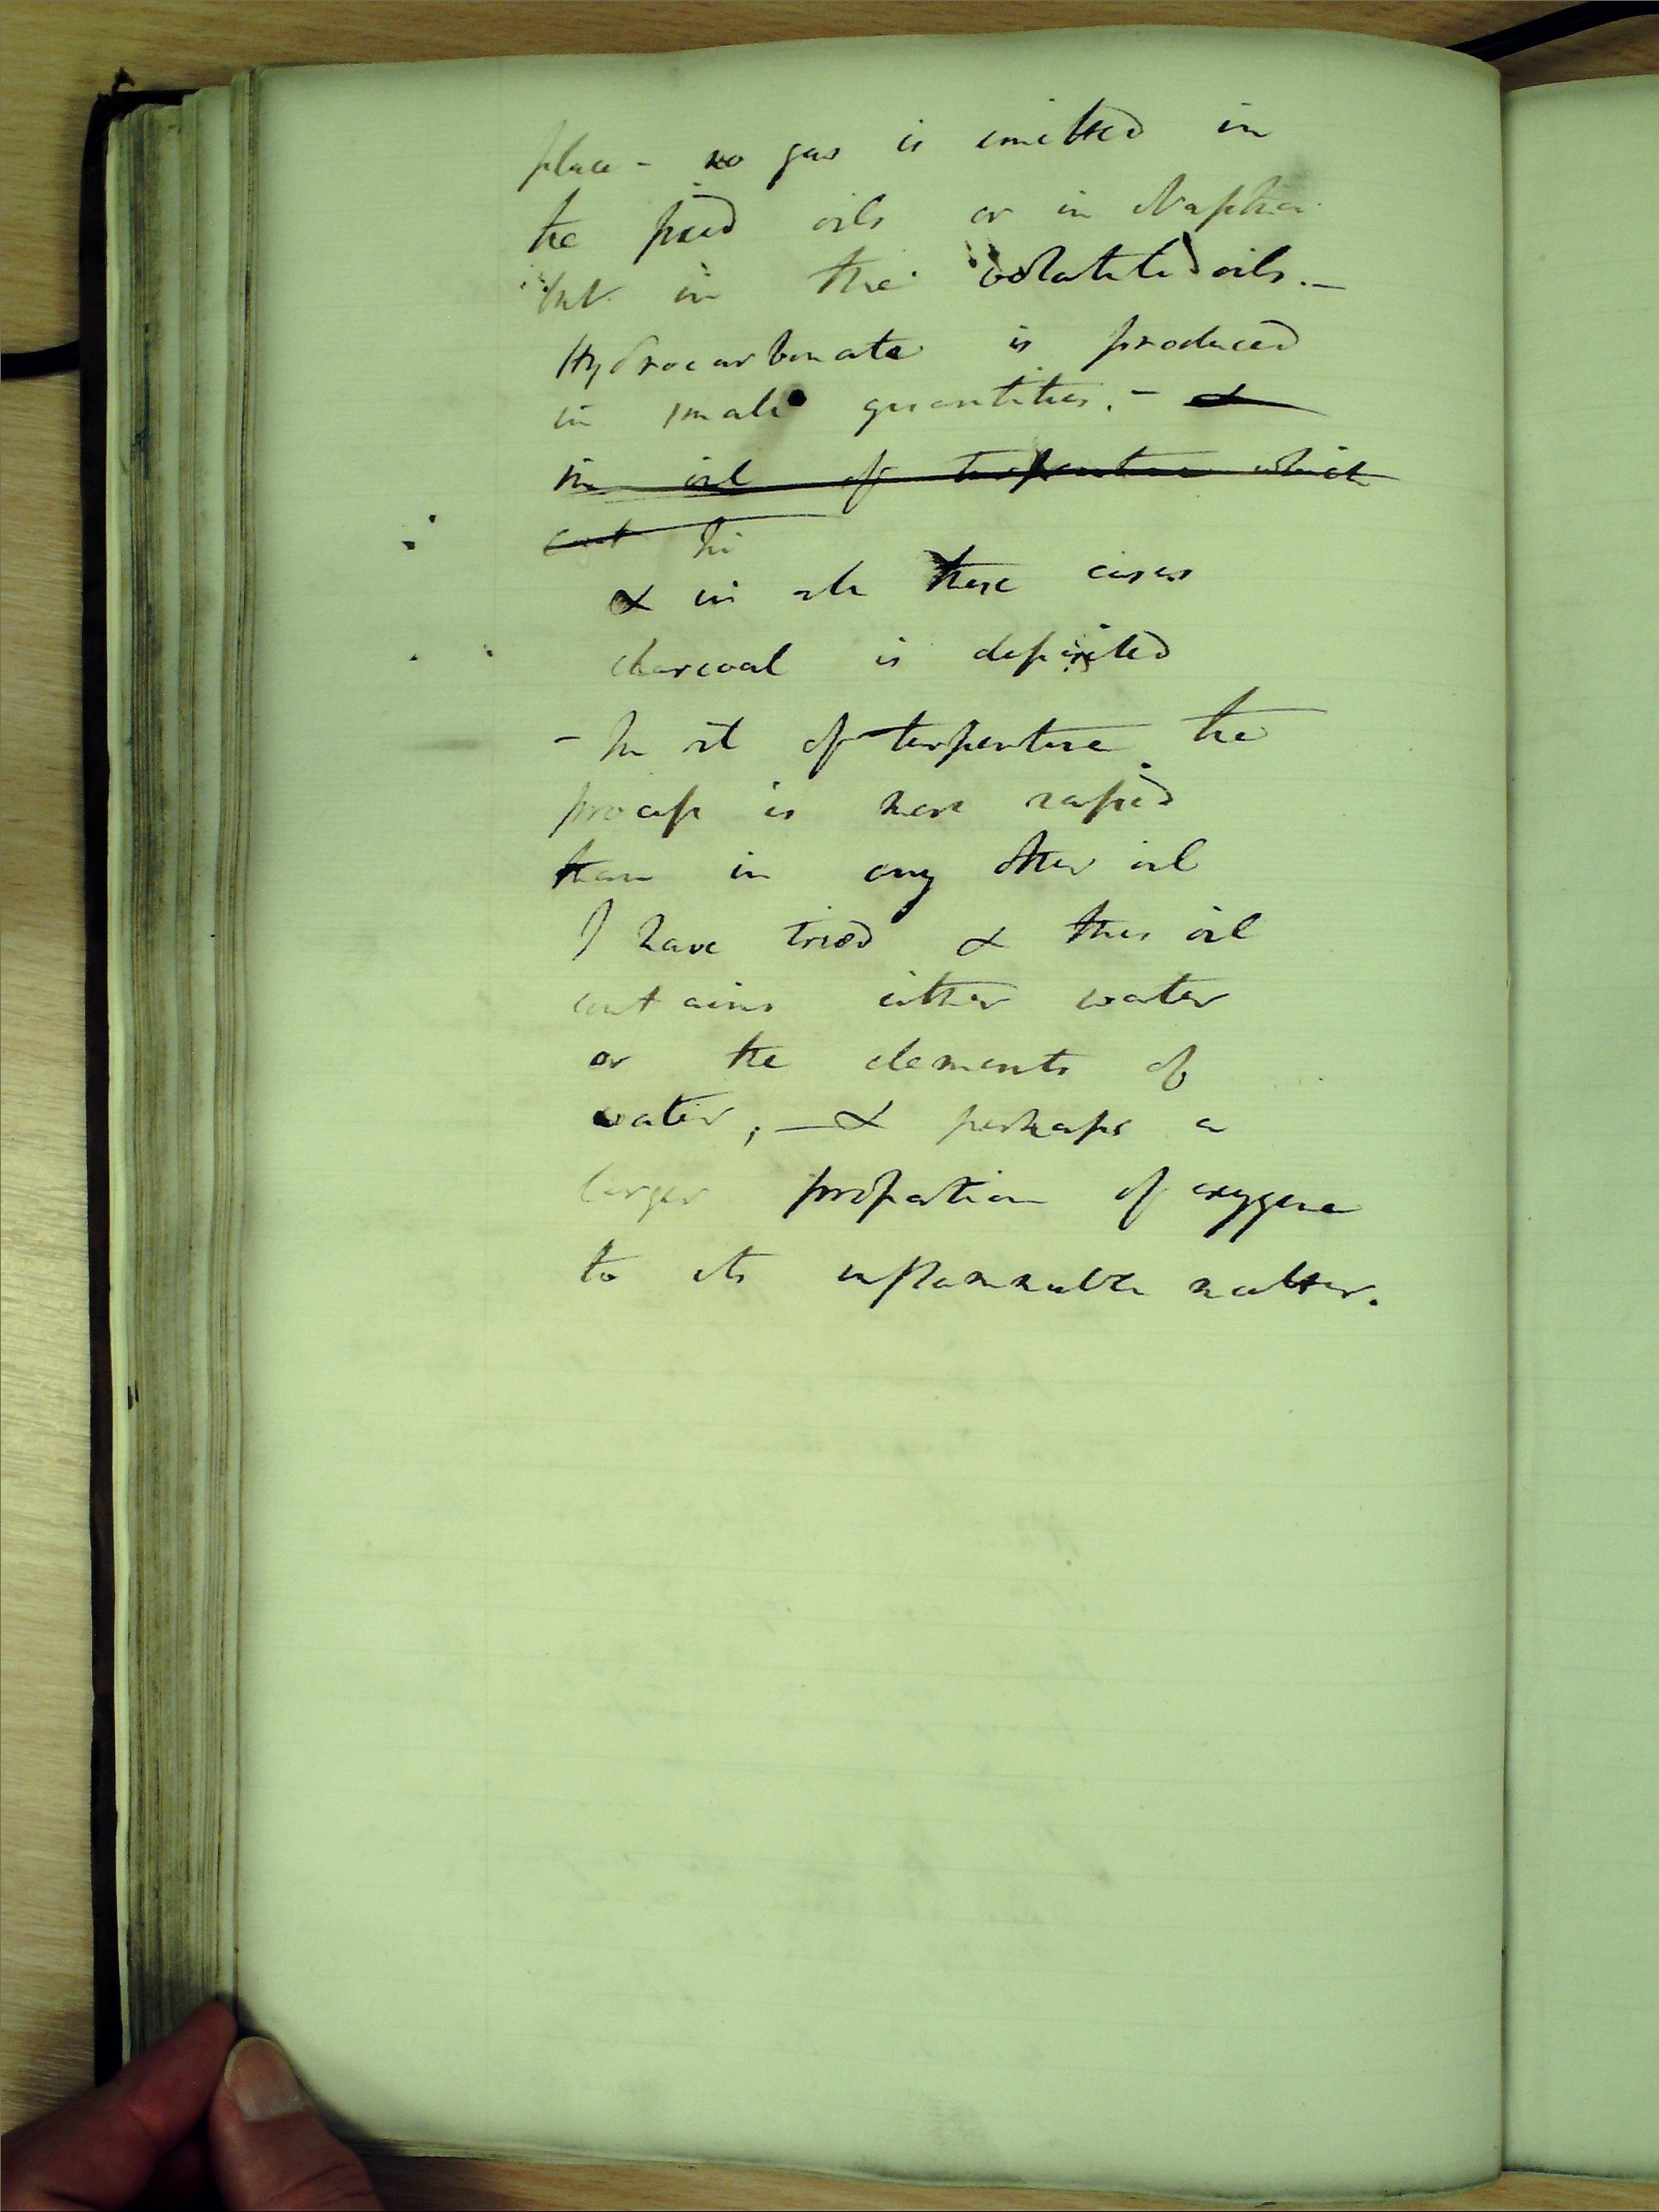 place - no gas is emitted in
the fixed oils or in Naptha
but in the volatile oils. —
Hydrocarbonate is produced
in small quantities. - &
in oil of turpentine which
cont In
& in all these cases
charcoal is deposited
- In oil of turpentine the
process is more rapid
than in any other oil
I have tried & this oil
contains either water
or the elements of
water; — & perhaps a
larger proportion of oxygene
to its inflammable matter.